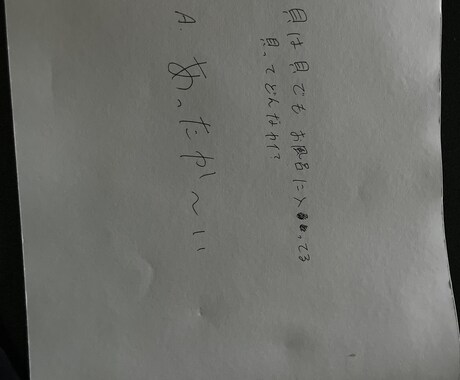 貝は貝でも お風呂に入ってる
貝ってどんなかい?
A. あったか〜いい